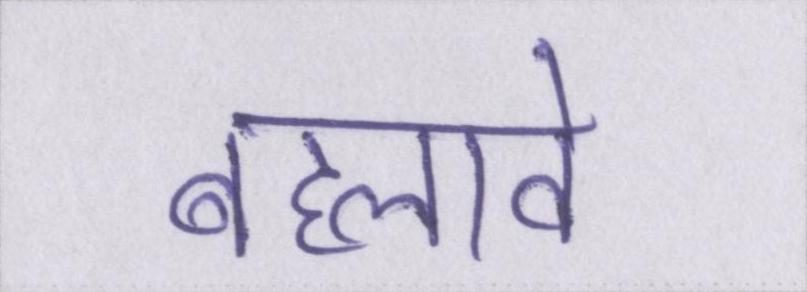 बहलावे